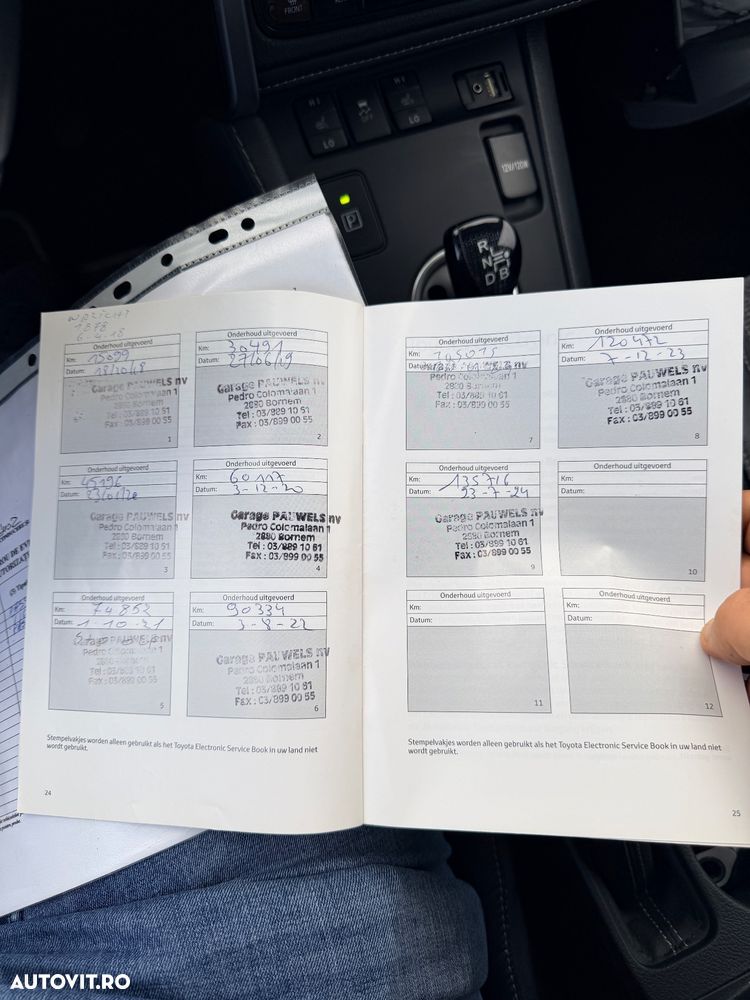 FRONT
HI
LO
OFF
HI
LO
12V/120W
P
R
N
D B
Onderhoud uitgevoerd
Km: 15099
Datum:
Garage PAUWELS nv
Pedro Colomalaan 1
2880 Bornem
Tel : 03/889 10 61
Fax : 03/899 00 55
1
Onderhoud uitgevoerd
Km: 30491
Datum: 27/06/19
Garage PAUWELS nv
Pedro Colomalaan 1
2880 Bornem
Tel : 03/889 10 61
Fax : 03/899 00 55
2
Onderhoud uitgevoerd
Km: 45196
Datum:
Garage PAUWELS nv
Pedro Colomalaan 1
2880 Bornem
Tel : 03/889 10 61
Fax : 03/899 00 55
3
Onderhoud uitgevoerd
Km: 60117
Datum: 3-12-20
Garage PAUWELS nv
Pedro Colomalaan 1
2880 Bornem
Tel : 03/889 10 61
Fax : 03/899 00 55
4
Onderhoud uitgevoerd
Km: 74852
Datum: 1-10-21
Garage PAUWELS nv
Pedro Colomalaan 1
2880 Bornem
Tel : 03/889 10 61
Fax : 03/899 00 55
5
Onderhoud uitgevoerd
Km: 90334
Datum: 3-8-22
Garage PAUWELS nv
Pedro Colomalaan 1
2880 Bornem
Tel : 03/889 10 61
Fax : 03/899 00 55
6
Stempelvakjes worden alleen gebruikt als het Toyota Electronic Service Book in uw land niet
wordt gebruikt.
24
Onderhoud uitgevoerd
Km: 105015
Datum:
Pedro Colomalaan 1
2880 Bornem
Tel : 03/889 10 61
Fax : 03/899 00 55
7
Onderhoud uitgevoerd
Km: 120472
Datum: 7-12-23
Garage PAUWELS nv
Pedro Colomalaan 1
2880 Bornem
Tel : 03/889 10 61
Fax : 03/899 00 55
8
Onderhoud uitgevoerd
Km: 135716
Datum: 23-7-24
Garage PAUWELS nv
Pedro Colomalaan 1
2880 Bornem
Tel : 03/889 10 61
Fax : 03/899 00 55
9
Onderhoud uitgevoerd
Km:
Datum:
10
Onderhoud uitgevoerd
Km:
Datum:
11
Onderhoud uitgevoerd
Km:
Datum:
12
Stempelvakjes worden alleen gebruikt als het Toyota Electronic Service Book in uw land niet
wordt gebruikt.
25
AUTOVIT.RO